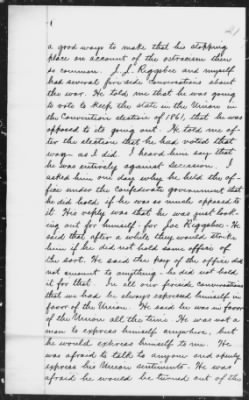 21
a good ways to make that his stopping
place on account of the ostracism then
so common. J. J. Rigsbee and myself
had several fire side conversations about
the war. He told me that he was going
to vote to keep the state in the Union in
the Convention election of 1861, that he was
opposed to its going out. He told me af-
ter the election that he had voted that
way as I did. I heard him say that
he was entirely against secession. I
asked him one day why he held the of-
fice under the Confederate government that
he did hold if he was so much opposed to
it. His reply was that he was just look-
ing out for himself - for Joe Rigsbee. He
said that after a while they would strike
him if he did not hold some office of
the sort. He said the pay of the office did
not amount to anything - he did not hold
it for that. In all our fireside conversations
that we had he always expressed himself in
favor of the Union. He said he was in favor
of the Union all the time. He was not a
man to express himself anywhere, but
he would express himself to me. He
was afraid to talk to anyone and openly
express his Union sentiments. He was
afraid he would be turned out of the